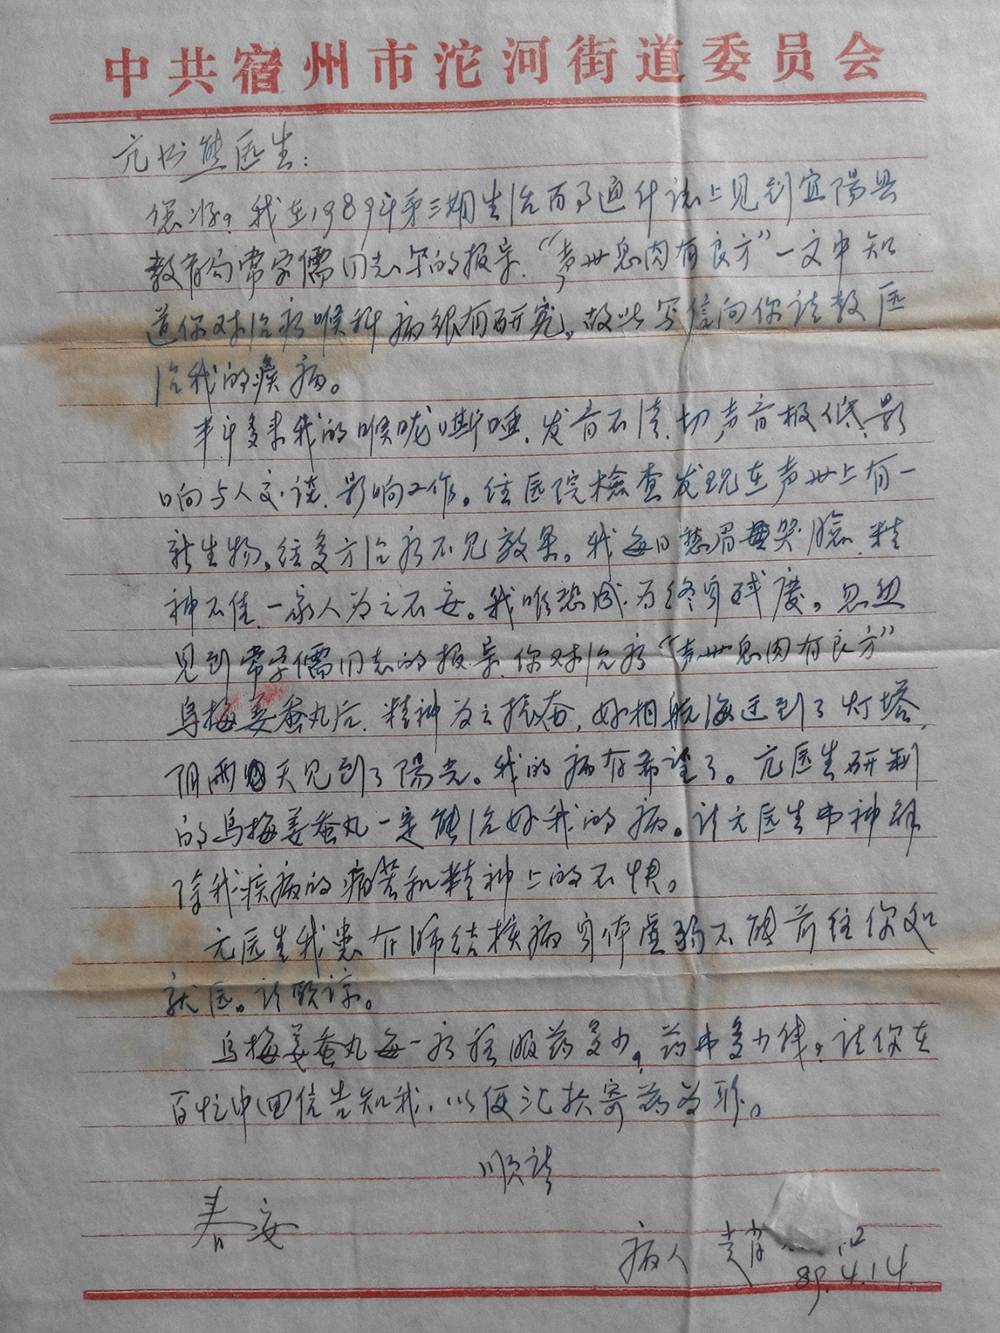 中共宿州市沱河街道委员会
亢 熊医生：
您好，我在1989年第三期生活百事通什誌上见到宜陽县
教育局常家儒同志 的报导，“声带息肉有良方”一文中知
道你对治疗喉科病很有研究。故此写信向你请教医
治我的疾病。
半年多来我的喉咙嘶哑，发音不清，切声音极低，影
响与人交谈，影响工作。经医院檢查发现在声带上有一
新生物。经多方治疗不见效果。我每日愁眉哭臉，精
神不佳，一家人为之不安。我唯恐成为终身残废。忽然
见到常家儒同志的报导，你对治疗“声带息肉有良方”
乌梅姜蚕丸后，精神为之振奋，好相航海迂到了灯塔，
阴雨天见到了陽光。我的病有希望了。亢医生研制
的乌梅姜蚕丸一定能治好我的病。请亢医生 神解
除我疾病的痛苦和精神上的不快。
亢医生我患有肺结核病身体虚弱不能前往你处
就医。请 谅。
乌梅姜蚕丸每一疗程服药多少，药 多少钱，请你在
百忙中回信告知我，以便汇款寄药为盼。
顺请
春安
病人 趙
89.4.14.